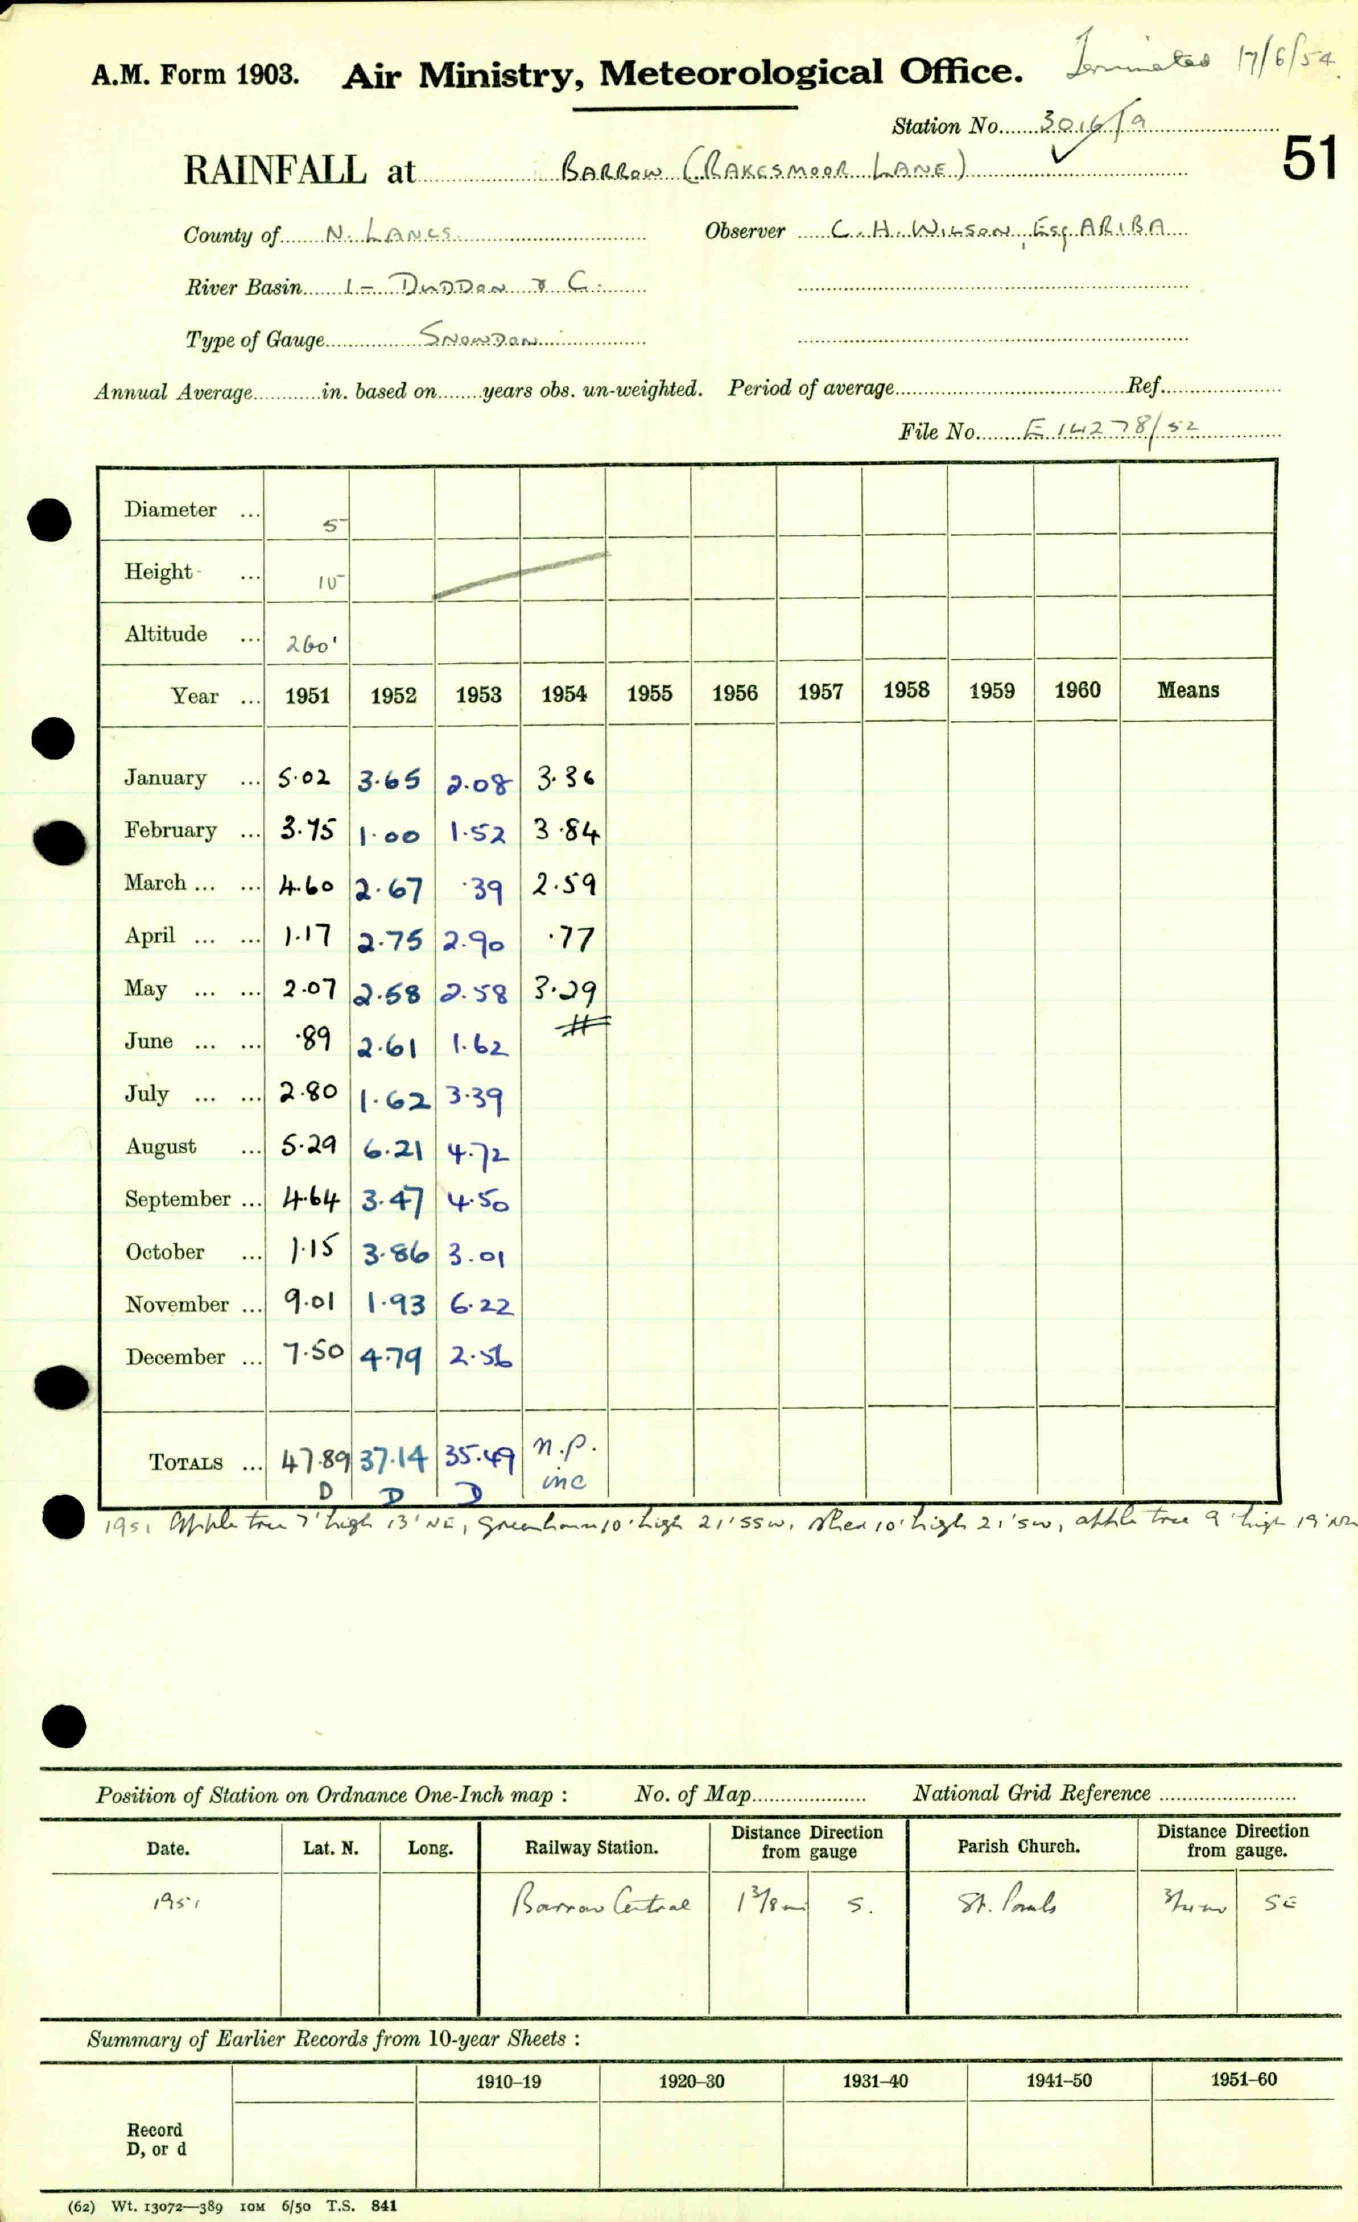 Terminated 17/6/54.
A.M. Form 1903. Air Ministry, Meteorological Office.
Station No. 3016/9
51
RAINFALL at BARROW (RAKESMOOR LANE)
County of N. LANCS. Observer C. H. WILSON, Esq ARIBA
River Basin 1 - DUDDON & C.
Type of Gauge SNOWDON
Annual Average in. based on years obs. un-weighted. Period of average Ref.
File No. E 14278/52
Diameter ... 5
Height ...
Altitude ... 260'
Year ... 1951 1952 1953 1954 1955 1956 1957 1958 1959 1960 Means
January ... 5.02 3.65 2.08 3.36
February ... 3.75 1.00 1.52 3.84
March ... ... 4.60 2.67 .39 2.59
April ... ... 1.17 2.75 2.90 .77
May ... ... 2.07 2.58 2.58 3.29
June ... ... .89 2.61 1.62
July ... ... 2.80 1.62 3.39
August ... 5.29 6.21 4.72
September ... 4.64 3.47 4.50
October ... 1.15 3.86 3.01
November ... 9.01 1.93 6.22
December ... 7.50 4.79 2.56
TOTALS ... 47.89 37.14 35.49 n.p.
D D D inc
1951 Apple tree 7' high 13' NE, greenhouse 10' high 21' SSW, shed 10' high 21' SW, apple tree 9' high 19'
Position of Station on Ordnance One-Inch map : No. of Map National Grid Reference
Date. Lat. N. Long. Railway Station. Distance Direction from gauge Parish Church. Distance Direction from gauge.
1951 Barrow Central 1 3/8 m S. St. Pauls 3/4 m SE
Summary of Earlier Records from 10-year Sheets :
1910–19 1920–30 1931–40 1941–50 1951–60
Record
D, or d
(62) Wt. 13072—389 10M 6/50 T.S. 841